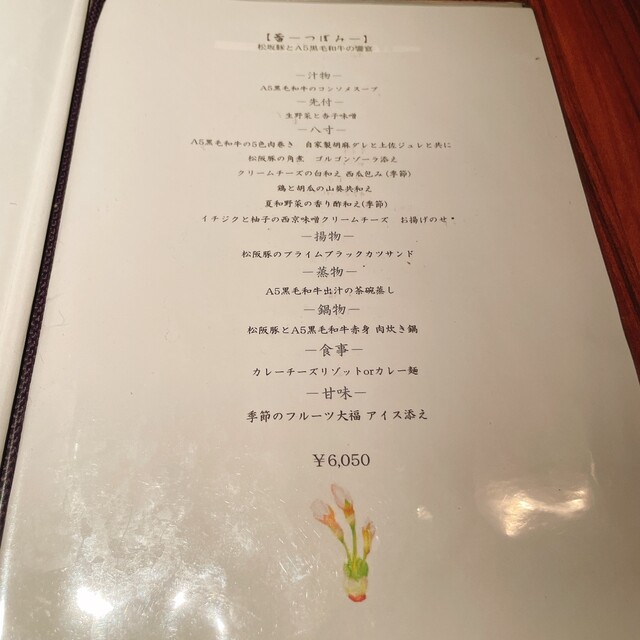 【蕾―つぼみ―】
松坂豚とA5黒毛和牛の饗宴
―汁物―
A5黒毛和牛のコンソメスープ
―先付―
生野菜と杏子味噌
―八寸―
A5黒毛和牛の5色肉巻き 自家製胡麻ダレと土佐ジュレと共に
松阪豚の角煮 ゴルゴンゾーラ添え
クリームチーズの白和え 西瓜包み(季節)
鶏と胡瓜の山葵共和え
夏和野菜の香り酢和え(季節)
イチジクと柚子の西京味噌クリームチーズ お揚げのせ
―揚物―
松阪豚のプライムブラックカツサンド
―蒸物―
A5黒毛和牛出汁の茶碗蒸し
―鍋物―
松阪豚とA5黒毛和牛赤身 肉炊き鍋
―食事―
カレーチーズリゾットorカレー麺
―甘味―
季節のフルーツ大福 アイス添え
￥6,050